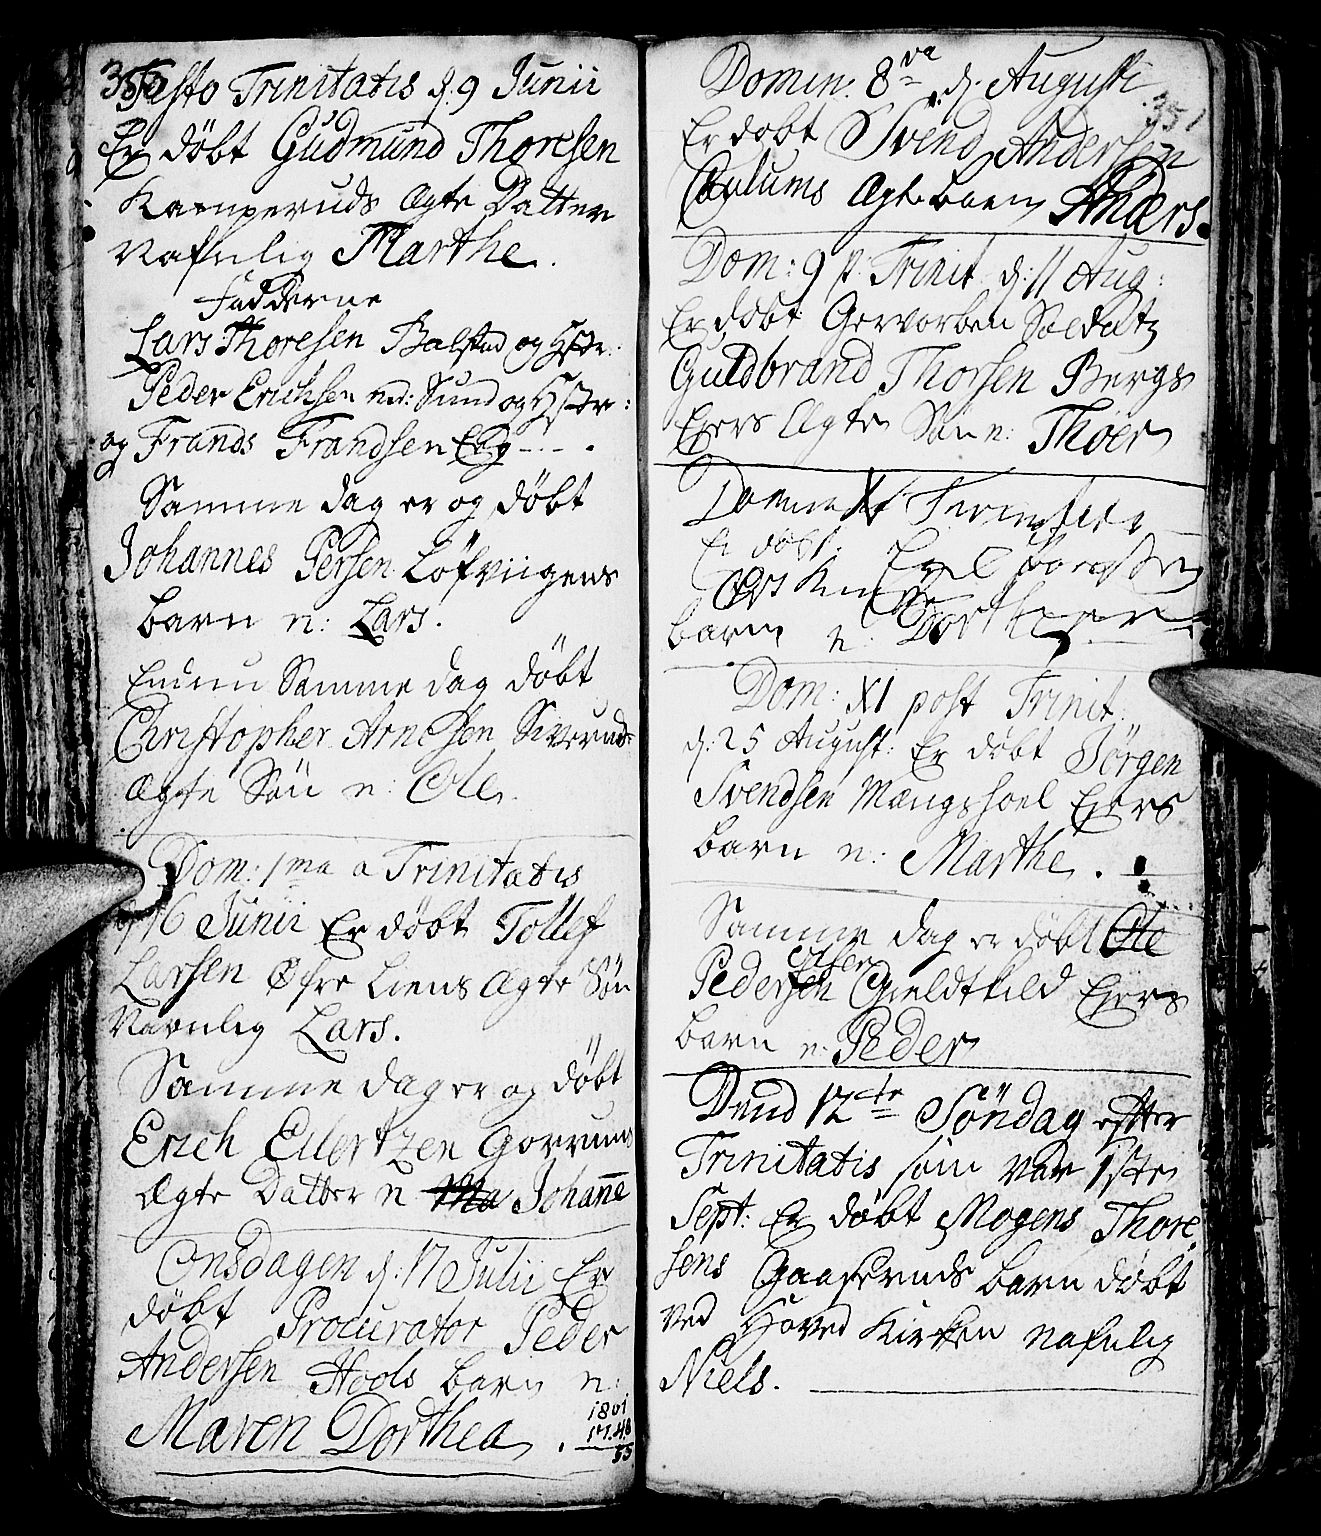 350
Festo Trinitatis d. 9 Junii
Er döbt Gudmund Thoresen
Kamperuds Ægte Datter
Nafnlig Marthe.
Fadderne
Lars Thoresen Balstad og Hstr:
Peder Erichsen nd: Sund og Hstr:
og Frands Frandsen Eeg
Samme dag er og döbt
Johannes Persen Löfviigens
barn n: Lars.
Endnu Samme dag döbt
Christopher Arnesen Siveruds
Ægte Sön n: Ole.
Dom: 1ma a Trinitatis
d. 16 Junii Er döbt Tollef
Larsen Öfre Liens Ægte Sön
Navnlig Lars.
Samme dag er og döbt
Erich Ellertzen Gorrums
Ægte Datter n Johanne
Onsdagen d: 17 Julii Er
döbt Procurator Peder
Andersen Hools barn n:
Maren Dorthea.
1801
1748
53
351
Domin. 8va d. Augusti
Er döbt Svend Andersen
Ægte barn Anders.
Dom: 9 p. Trinit d: 11 Aug:
Er döbt Gevorben Soldat
Guldbrand Thorsen Bergs
Ejers Ægte Sön n: Thoer
Domin X Trinitatis
Er döbt
barn n: Dorthe
Dom: XI post Trinit:
d: 25 August: Er döbt Jörgen
Svendsen Mængshoel Ejers
barn n: Marthe.
Samme dag er döbt Ole
Olsen
Pedersen Gieldtkild Ejers
barn n: Peder
Dend 12te Söndag efter
Trinitatis som var 1ste
Sept: Er döbt Mogens Thore
sens Gaaseruds barn döbt
ved Hoved Kirken nafnlig
Niels.